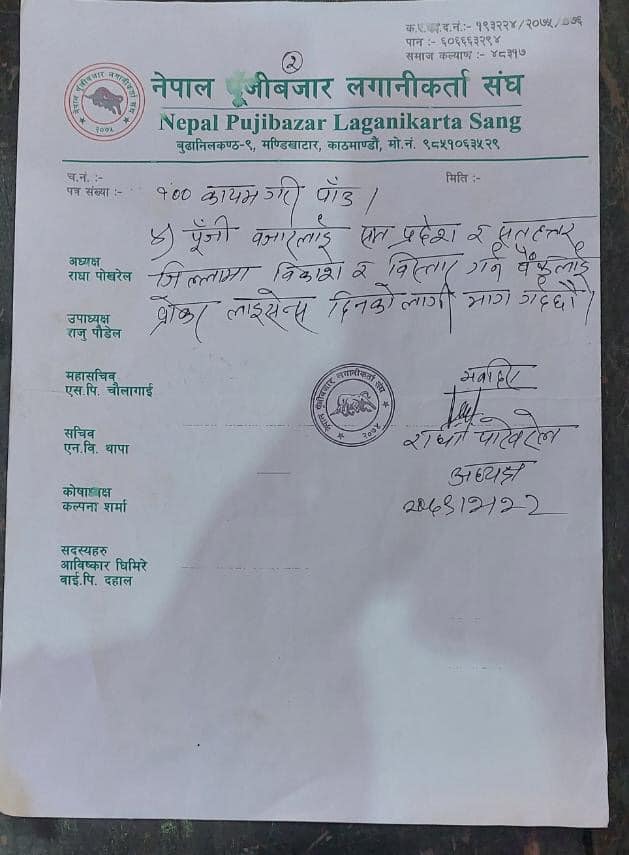 क.
द.नं.:- १९३२२४/२०७५/०७६
पान :- ६०६६६३२९४
समाज कल्याण :- ४८३१७
२
नेपाल पूँजीबजार लगानीकर्ता संघ
Nepal Pujibazar Laganikarta Sang
बुढानिलकण्ठ-९, मण्डिखाटार, काठमाण्डौ, मो.नं. ९८५१०६३५२९
च.नं. :-
पत्र संख्या :-
मिति :-
१०० कायम गरी पाँउ।
४) पूँजी बजारलाई सात प्रदेश र सतहत्तर
जिल्लामा विकाश र विस्तार गर्न बैंकलाई
ब्रोकर लाइसेन्स दिनको लागी माग गर्दछौं।
अध्यक्ष
राधा पोखरेल
उपाध्यक्ष
राजु पौडेल
महासचिव
एस.पि. चौलागाई
सचिव
एन.वि. थापा
कोषाध्यक्ष
कल्पना शर्मा
सदस्यहरु
आविष्कार घिमिरे
वाई.पि. दहाल
नेपाल पूँजीबजार लगानीकर्ता संघ
२०७५
राधा पोखरेल
अध्यक्ष